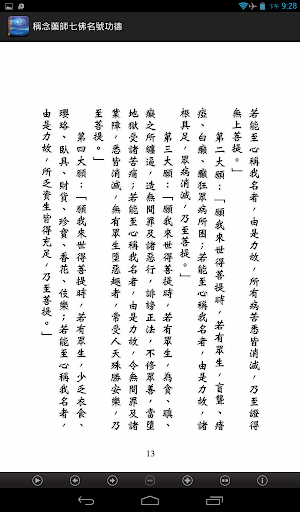 下午 9:28
稱念藥師七佛名號功德
若能至心稱我名者，由是力故，所有病苦悉皆消滅，乃至證得
無上菩提。」
第二大願：「願我來世得菩提時，若有眾生，盲聾、瘖
瘂、白癩、癲狂眾病所困；若能至心稱我名者，由是力故，諸
根具足，眾病消滅，乃至菩提。」
第三大願：「願我來世得菩提時，若有眾生，為貪、瞋、
癡之所纏逼，造無間罪及諸惡行，誹謗正法，不修眾善，當墮
地獄受諸苦痛；若能至心稱我名者，由是力故，令無間罪及諸
業障，悉皆消滅，無有眾生墮惡趣者，常受人天殊勝安樂，乃
至菩提。」
第四大願：「願我來世得菩提時，若有眾生，少乏衣食、
瓔珞、臥具、財貨、珍寶、香花、伎樂；若能至心稱我名者，
由是力故，所乏資生皆得充足，乃至菩提。」
13